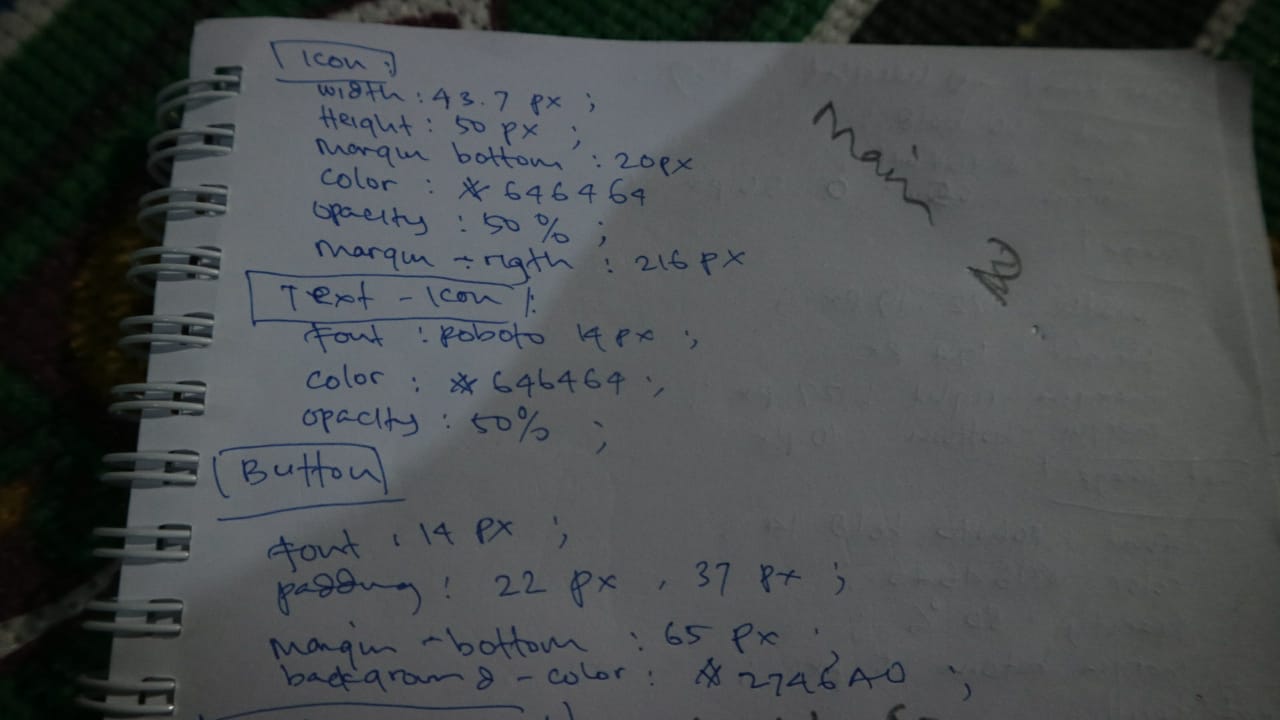 Icon :
width : 43.7 px ;
Height : 50 px ;
margin bottom : 20px
color : # 646464
opacity : 50 % ;
margin - rigth : 216 px
Text - Icon :
font : Roboto 14 px ;
color : # 646464 ;
opacity : 50% ;
Button
font : 14 px ;
padding : 22 px , 37 px ;
margin - bottom : 65 px ;
background - color : # 2746A0 ;
Main